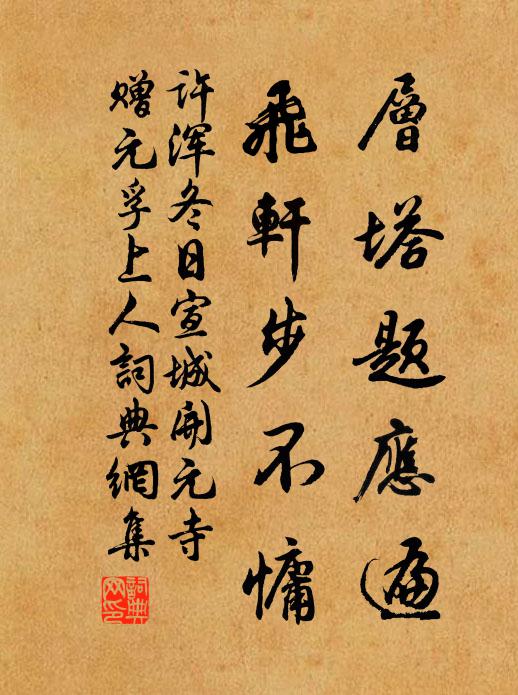 層塔題應遍
飛軒步不慵
许渾冬日宣城開元寺
赠元孚上人詞典網集
詞典网印